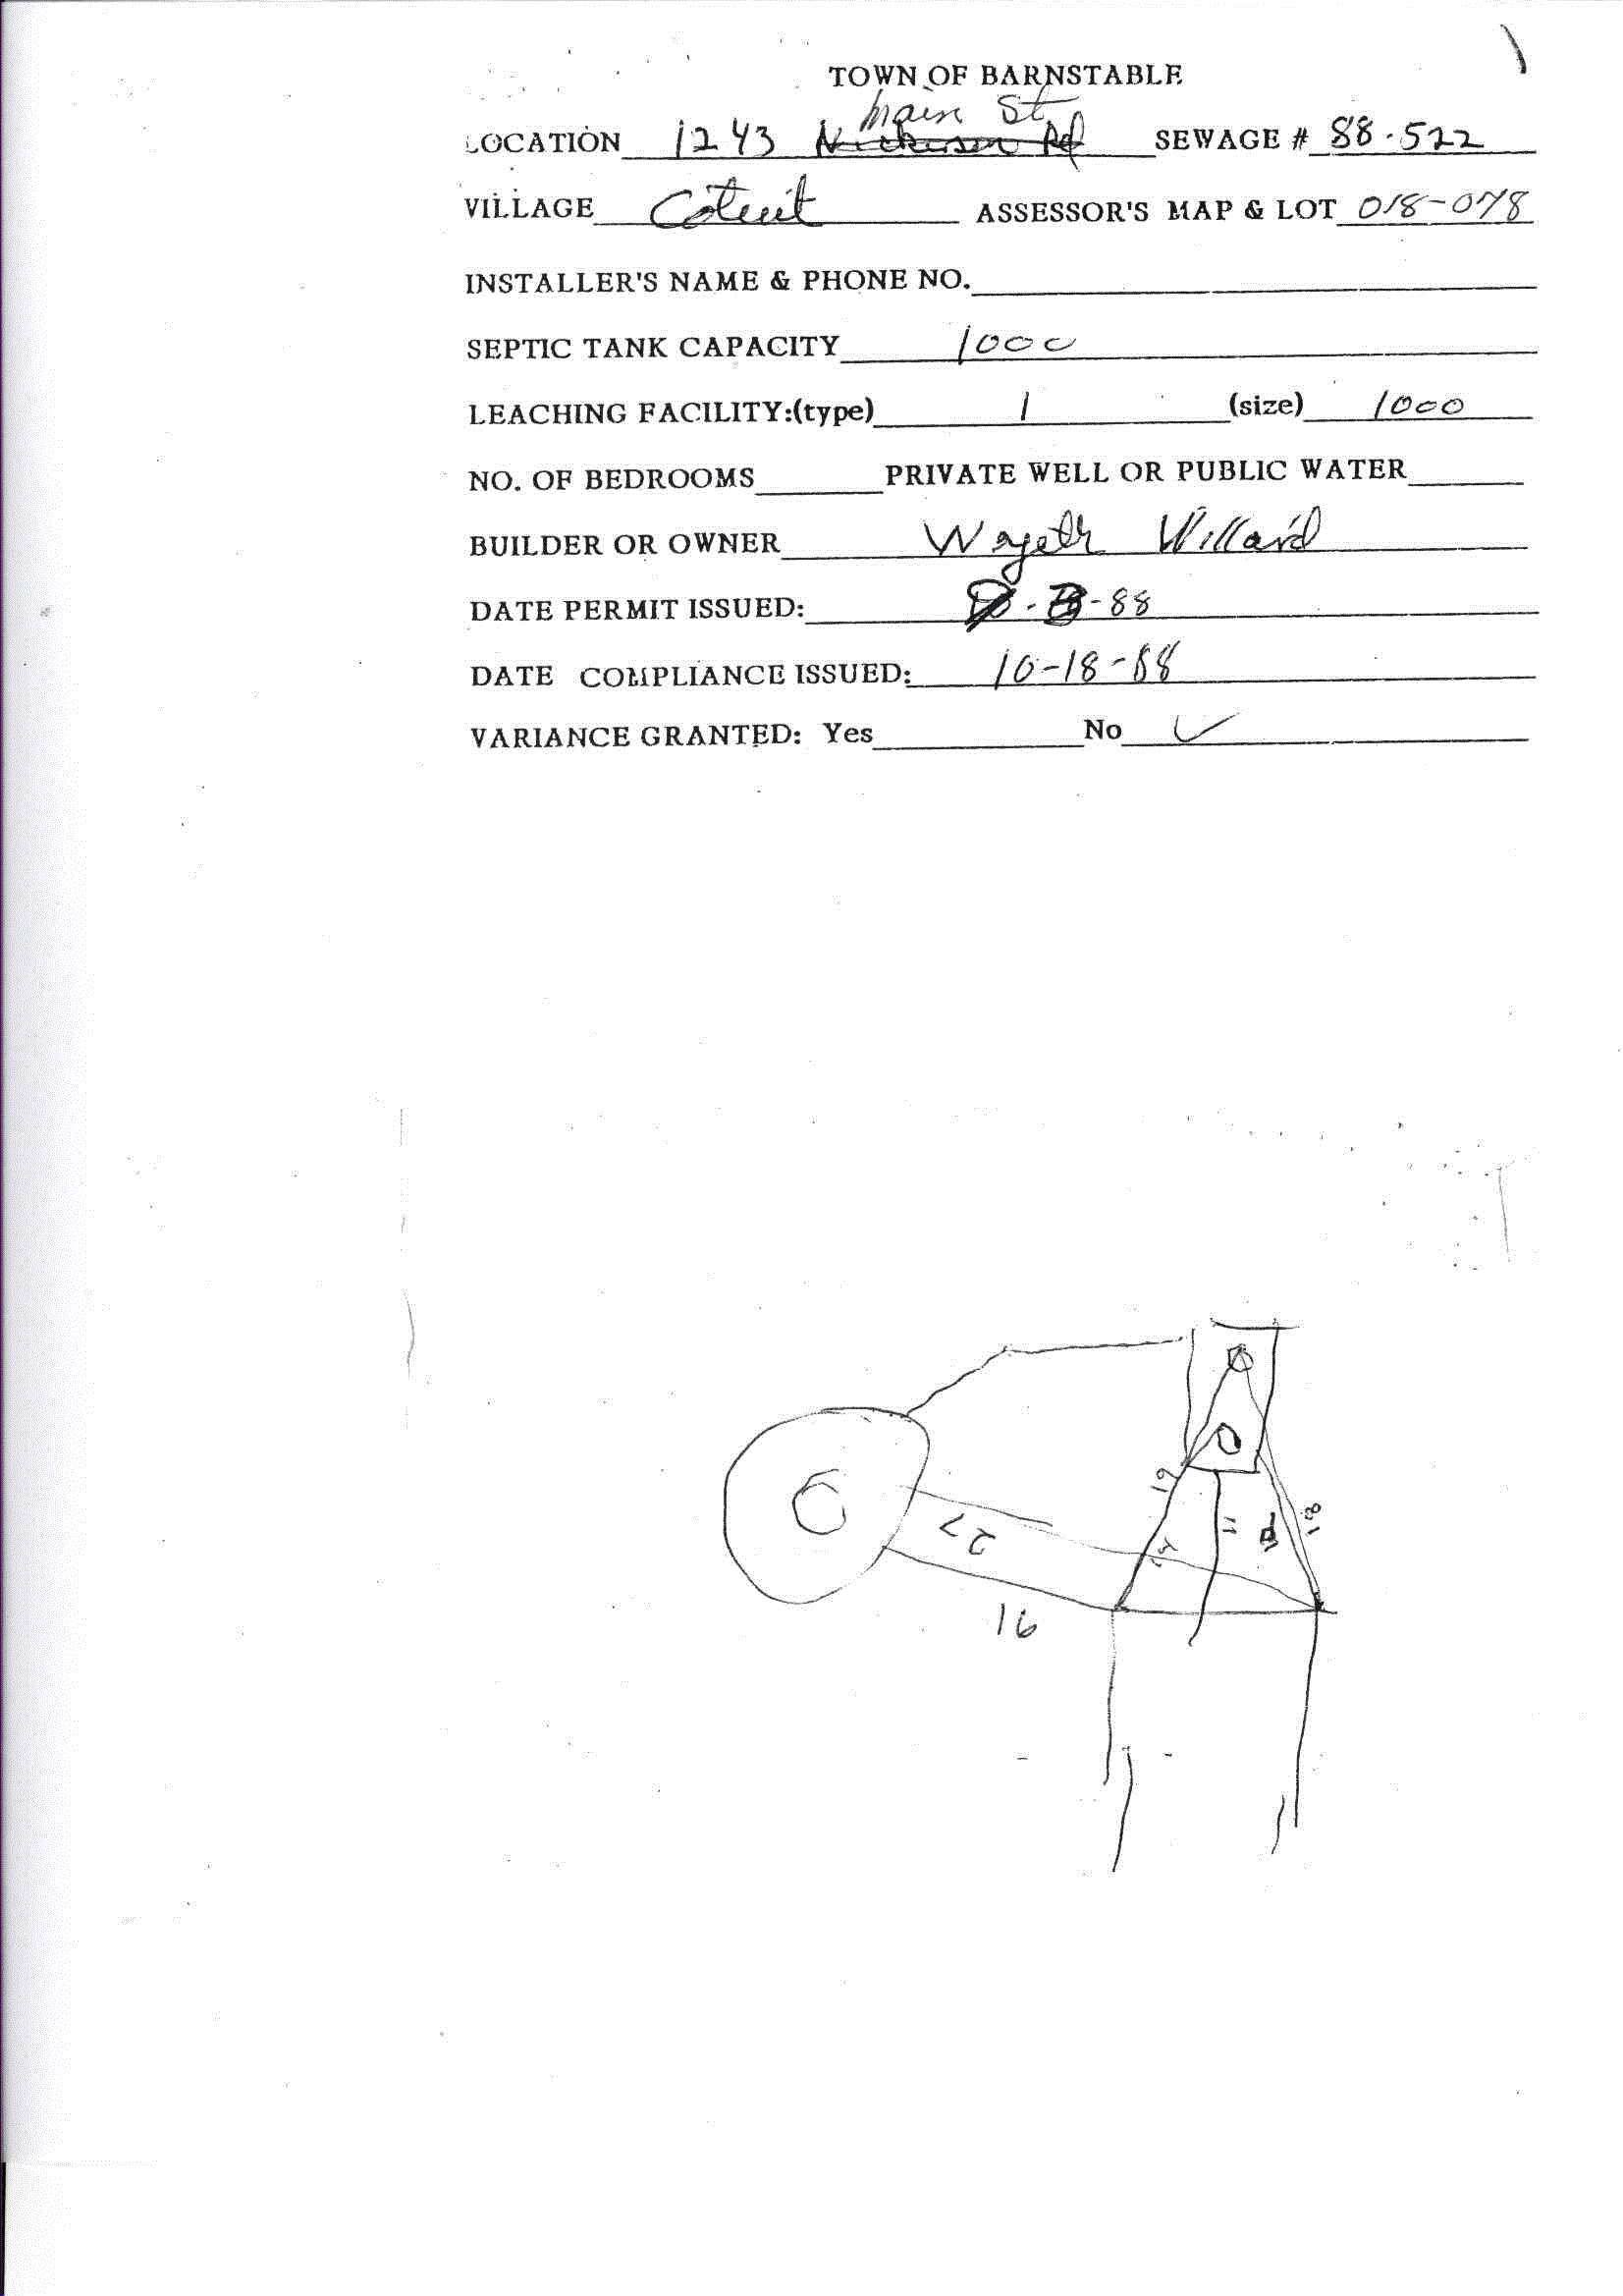 TOWN OF BARNSTABLE
Main St
LOCATION 1243 Nickerson Rd SEWAGE # 88-522
VILLAGE Cotuit ASSESSOR'S MAP & LOT 018-078
INSTALLER'S NAME & PHONE NO.
SEPTIC TANK CAPACITY 1000
LEACHING FACILITY:(type) 1 (size) 1000
NO. OF BEDROOMS PRIVATE WELL OR PUBLIC WATER
BUILDER OR OWNER Willard
DATE PERMIT ISSUED: -88
DATE COMPLIANCE ISSUED: 10-18-88
VARIANCE GRANTED: Yes No ✓
19
18
11
27
16